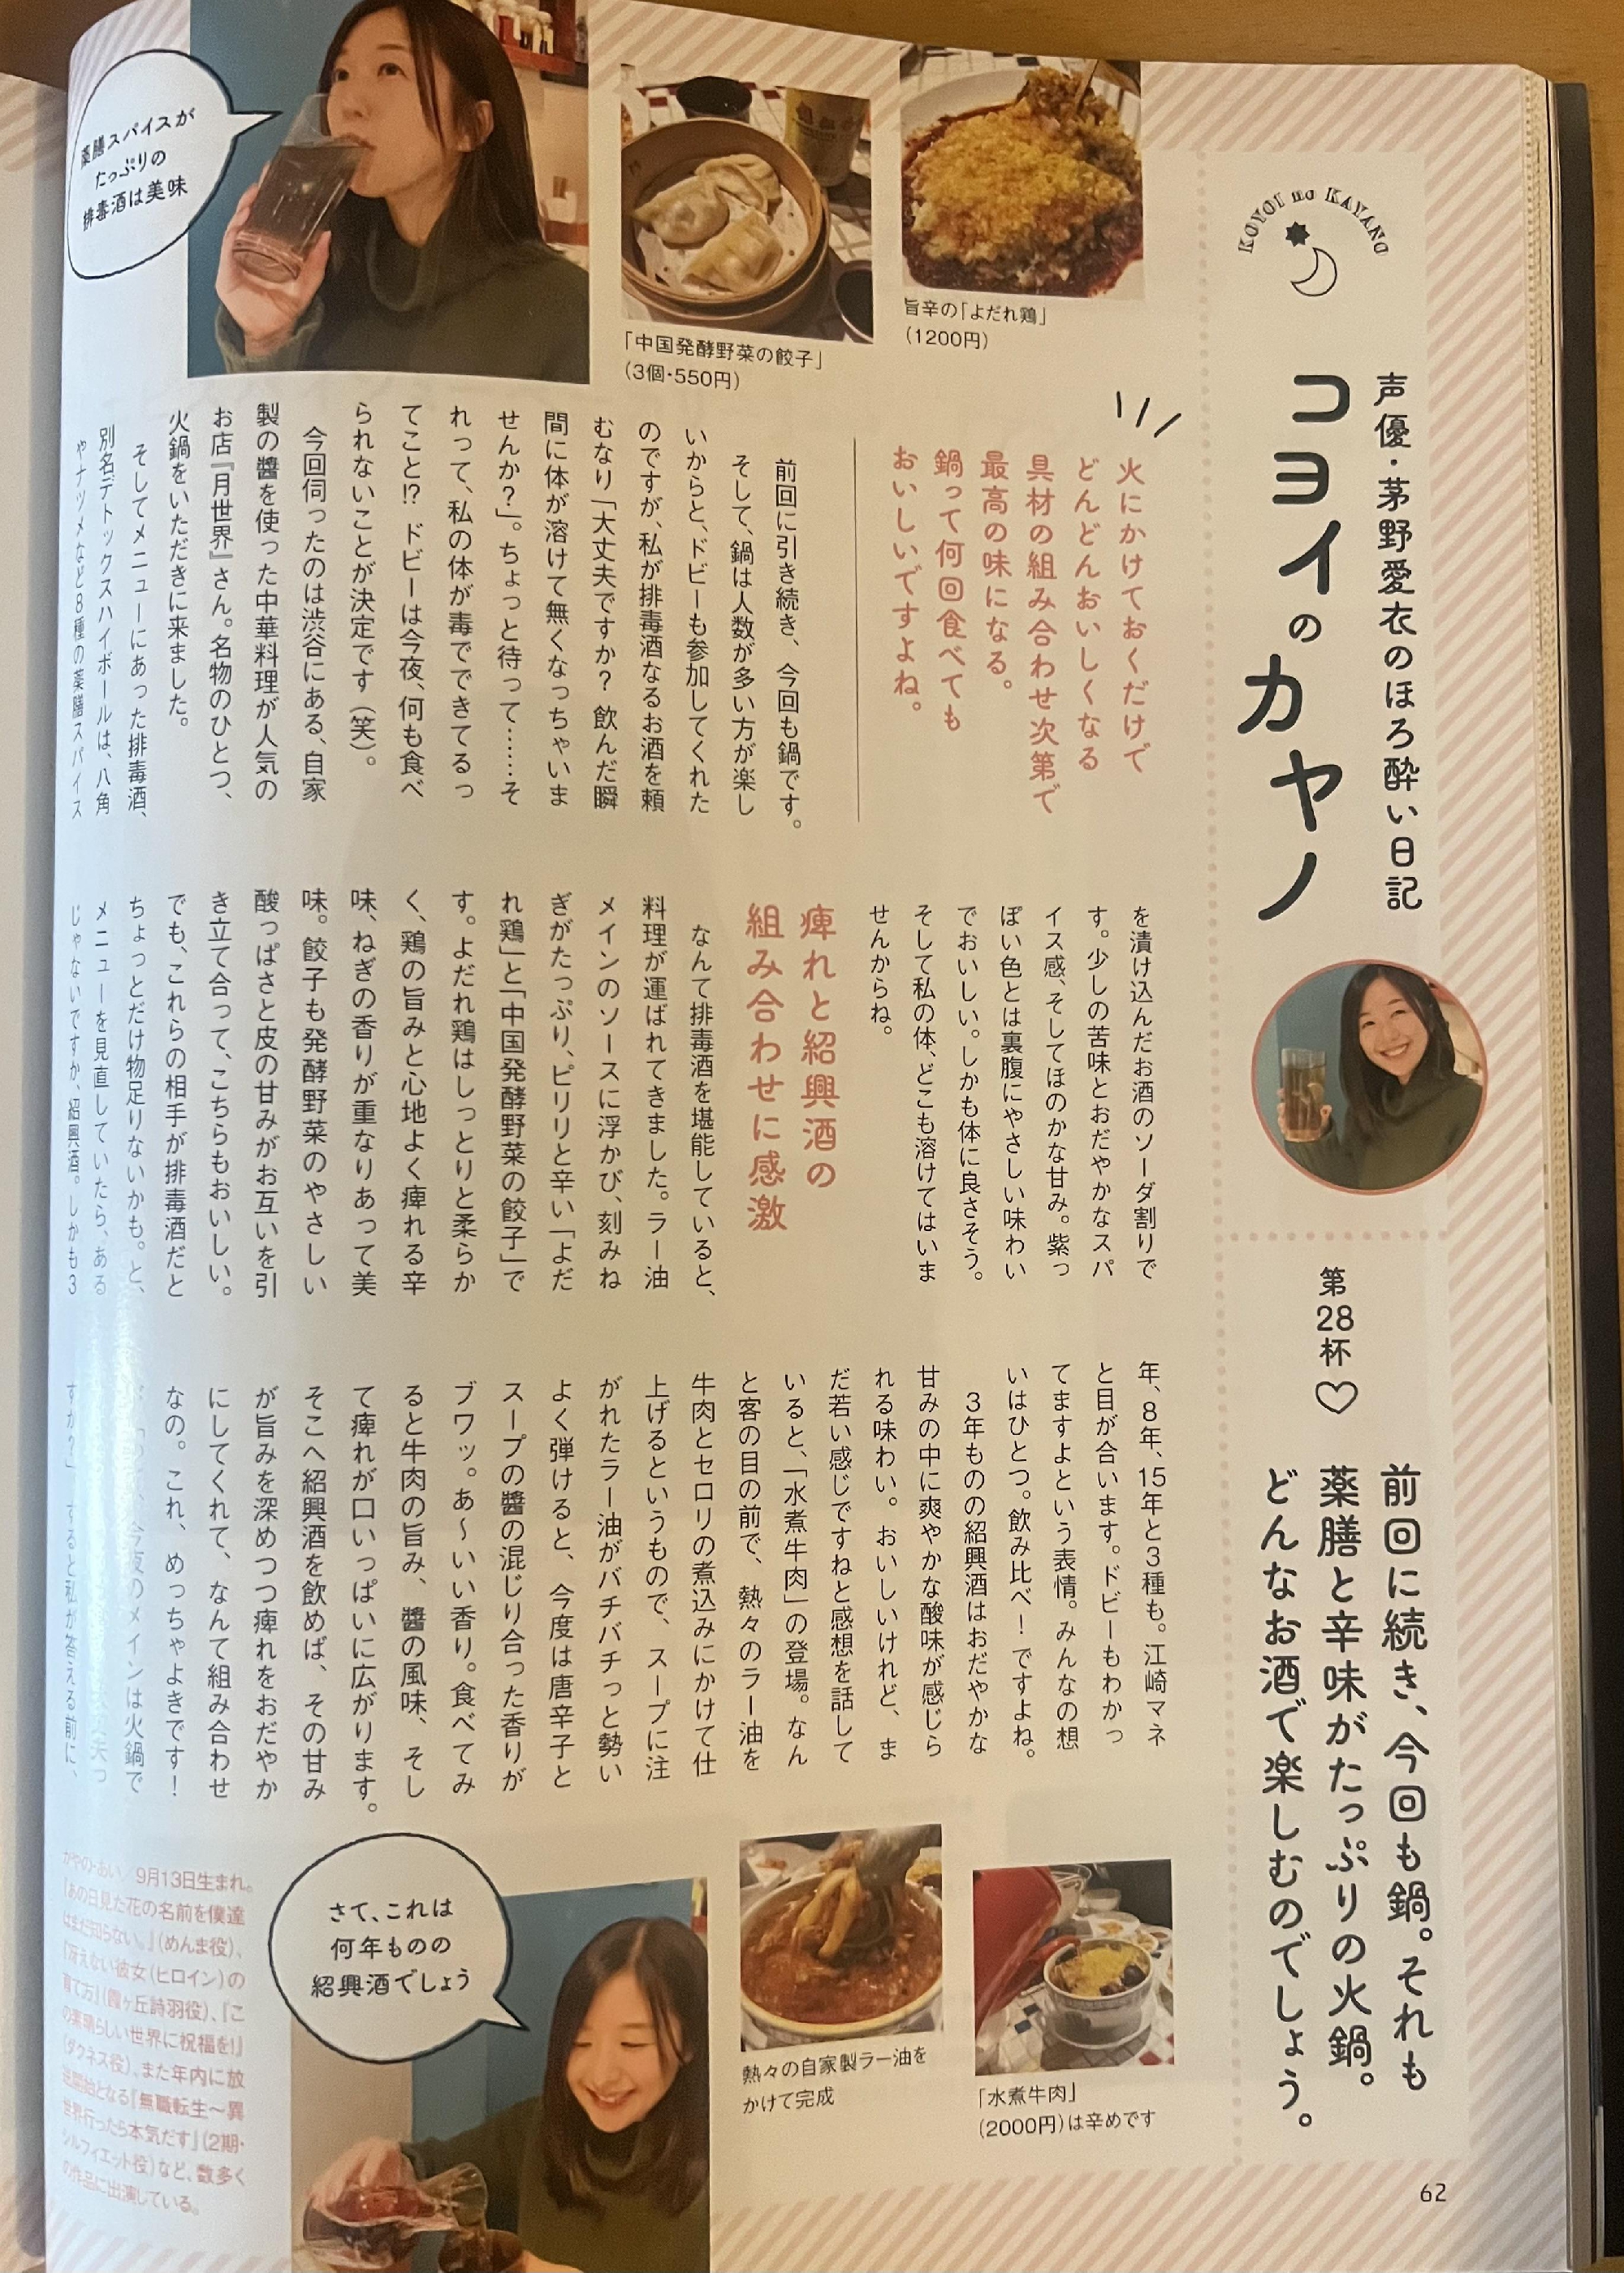 KOYOI no KAYANO
声優・茅野愛衣のほろ酔い日記
コヨイのカヤノ
第28杯♡
前回に続き、今回も鍋。それも
薬膳と辛味がたっぷりの火鍋。
どんなお酒で楽しむのでしょう。
旨辛の「よだれ鶏」
(1200円)
「中国発酵野菜の餃子」
(3個・550円)
薬膳スパイスが
たっぷりの
排毒酒は美味
火にかけておくだけで
どんどんおいしくなる
具材の組み合わせ次第で
最高の味になる。
鍋って何回食べても
おいしいですよね。
前回に引き続き、今回も鍋です。
そして、鍋は人数が多い方が楽し
いからと、ドビーも参加してくれた
のですが、私が排毒酒なるお酒を頼
むなり「大丈夫ですか? 飲んだ瞬
間に体が溶けて無くなっちゃいま
せんか?」。ちょっと待って……そ
れって、私の体が毒でできてるっ
てこと!? ドビーは今夜、何も食べ
られないことが決定です(笑)。
今回伺ったのは渋谷にある、自家
製の醬を使った中華料理が人気の
お店『月世界』さん。名物のひとつ、
火鍋をいただきに来ました。
そしてメニューにあった排毒酒、
別名デトックスハイボールは、八角
やナツメなど8種の薬膳スパイス
を漬け込んだお酒のソーダ割りで
す。少しの苦味とおだやかなスパ
イス感、そしてほのかな甘み。紫っ
ぽい色とは裏腹にやさしい味わい
でおいしい。しかも体に良さそう。
そして私の体、どこも溶けてはいま
せんからね。
痺れと紹興酒の
組み合わせに感激
なんて排毒酒を堪能していると、
料理が運ばれてきました。ラー油
メインのソースに浮かび、刻みね
ぎがたっぷり、ピリリと辛い「よだ
れ鶏」と「中国発酵野菜の餃子」で
す。よだれ鶏はしっとりと柔らか
く、鶏の旨みと心地よく痺れる辛
味、ねぎの香りが重なりあって美
味。餃子も発酵野菜のやさしい
酸っぱさと皮の甘みがお互いを引
き立て合って、こちらもおいしい。
でも、これらの相手が排毒酒だと
ちょっとだけ物足りないかも。と、
メニューを見直していたら、ある
じゃないですか、紹興酒。しかも3
年、8年、15年と3種も。江崎マネ
と目が合います。ドビーもわかっ
てますよという表情。みんなの想
いはひとつ。飲み比べ! ですよね。
3年ものの紹興酒はおだやかな
甘みの中に爽やかな酸味が感じら
れる味わい。おいしいけれど、ま
だ若い感じですねと感想を話して
いると、「水煮牛肉」の登場。なん
と客の目の前で、熱々のラー油を
牛肉とセロリの煮込みにかけて仕
上げるというもので、スープに注
がれたラー油がバチバチっと勢い
よく弾けると、今度は唐辛子と
スープの醬の混じり合った香りが
ブワッ。あ〜いい香り。食べてみ
ると牛肉の旨み、醬の風味、そし
て痺れが口いっぱいに広がります。
そこへ紹興酒を飲めば、その甘み
が旨みを深めつつ痺れをおだやか
にしてくれて、なんて組み合わせ
なの。これ、めっちゃよきです!
今夜のメインは火鍋で
すか?」 すると私が答える前に、
「水煮牛肉」
(2000円)は辛めです
熱々の自家製ラー油を
かけて完成
さて、これは
何年ものの
紹興酒でしょう
かやの・あい/9月13日生まれ。
『あの日見た花の名前を僕達
はまだ知らない。』(めんま役)、
『冴えない彼女(ヒロイン)の
育て方』(霞ヶ丘詩羽役)、『こ
の素晴らしい世界に祝福を!』
(ダクネス役)、また年内に放
送開始となる『無職転生〜異
世界行ったら本気だす』(2期・
シルフィエット役)など、数多く
の作品に出演している。
62